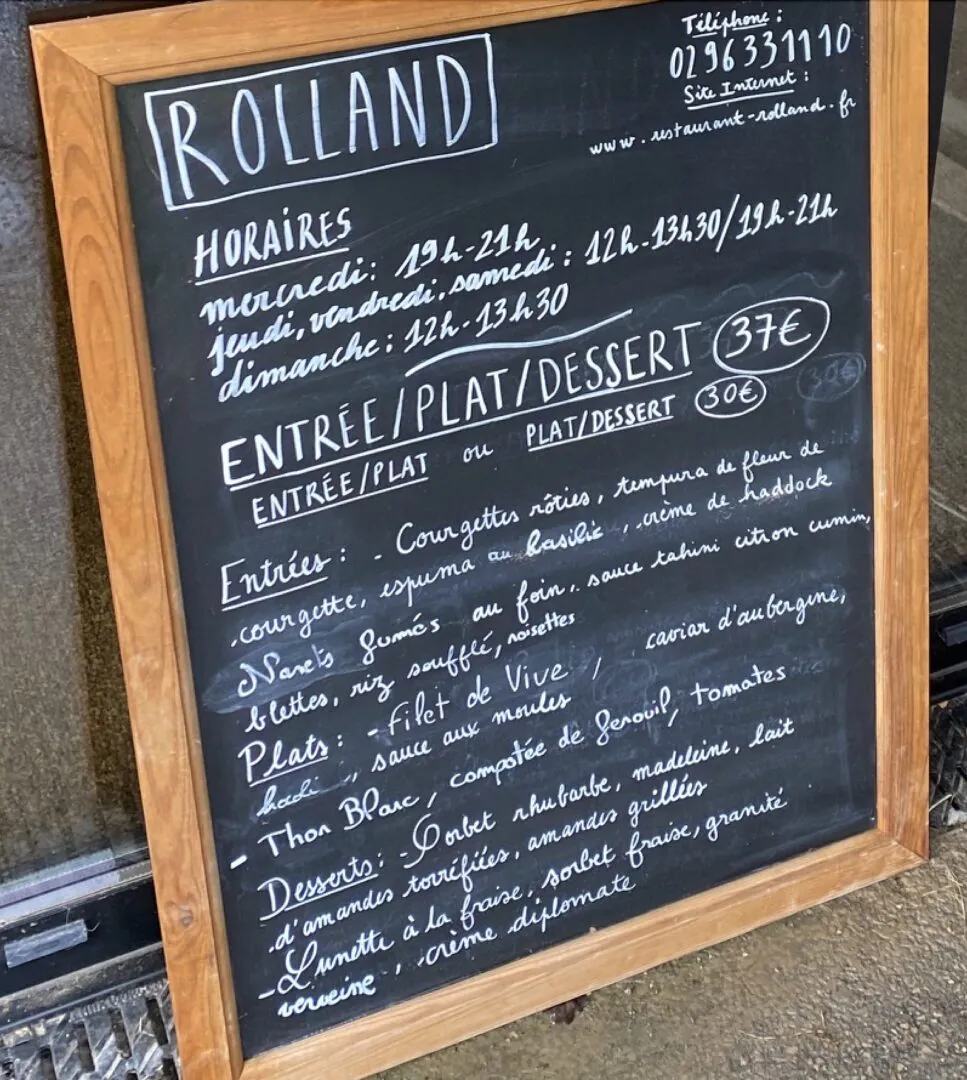 ROLLAND
Téléphone :
02 96 33 11 10
Site Internet :
www.restaurant-rolland.fr
HORAIRES
mercredi : 19h-21h
jeudi, vendredi, samedi : 12h-13h30/19h-21h
dimanche : 12h-13h30
ENTRÉE/PLAT/DESSERT 37€
ENTRÉE/PLAT ou PLAT/DESSERT 30€
30€
Entrées : - Courgettes rôties, tempura de fleur de
courgette, espuma au basilic, crème de haddock
Navets fumés au foin, sauce tahini citron cumin,
blettes, riz soufflé, noisettes
Plats : - Filet de Vive / caviar d'aubergine,
sauce aux moules
- Thon Blanc, compotée de fenouil, tomates
Desserts : - Sorbet rhubarbe, madeleine, lait
d'amandes torréfiées, amandes grillées
- Lunette à la fraise, sorbet fraise, granité
verveine, crème diplomate